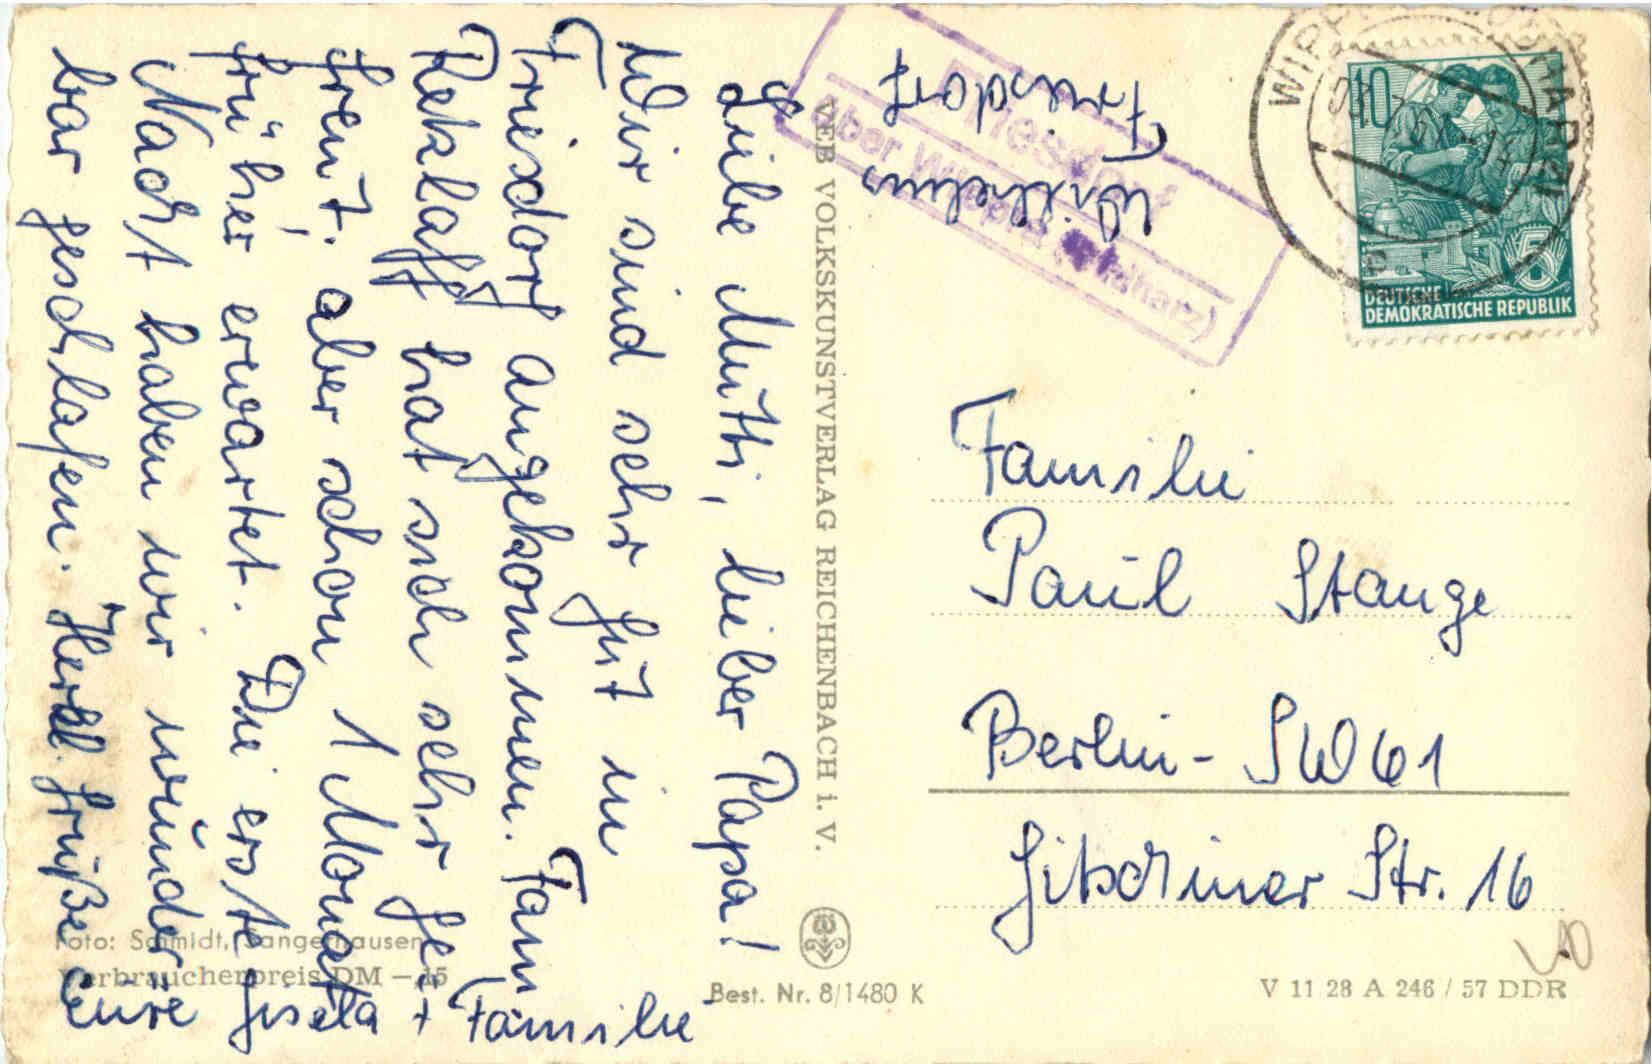 Liebe Mutti, lieber Papa!
Wir sind sehr gut in
Friesdorf angekommen. Fam.
Reklaff hat sich sehr ge-
freut, aber schon 1 Monat
früher erwartet. Die erste
Nacht haben wir wunder
bar geschlafen. Herzl. Grüße
Eure Gisela + Familie
Wilhelm
Friesdorf
Friesdorf
über Wippra (Südharz)
10
DEUTSCHE
DEMOKRATISCHE REPUBLIK
Familie
Paul Stange
Berlin - SW 61
Gitschiner Str. 16
VEB VOLKSKUNSTVERLAG REICHENBACH i. V.
Foto: Schmidt, Sangerhausen
Verbraucherpreis DM -,15
Best. Nr. 8/1480 K
V 11 28 A 246 / 57 DDR